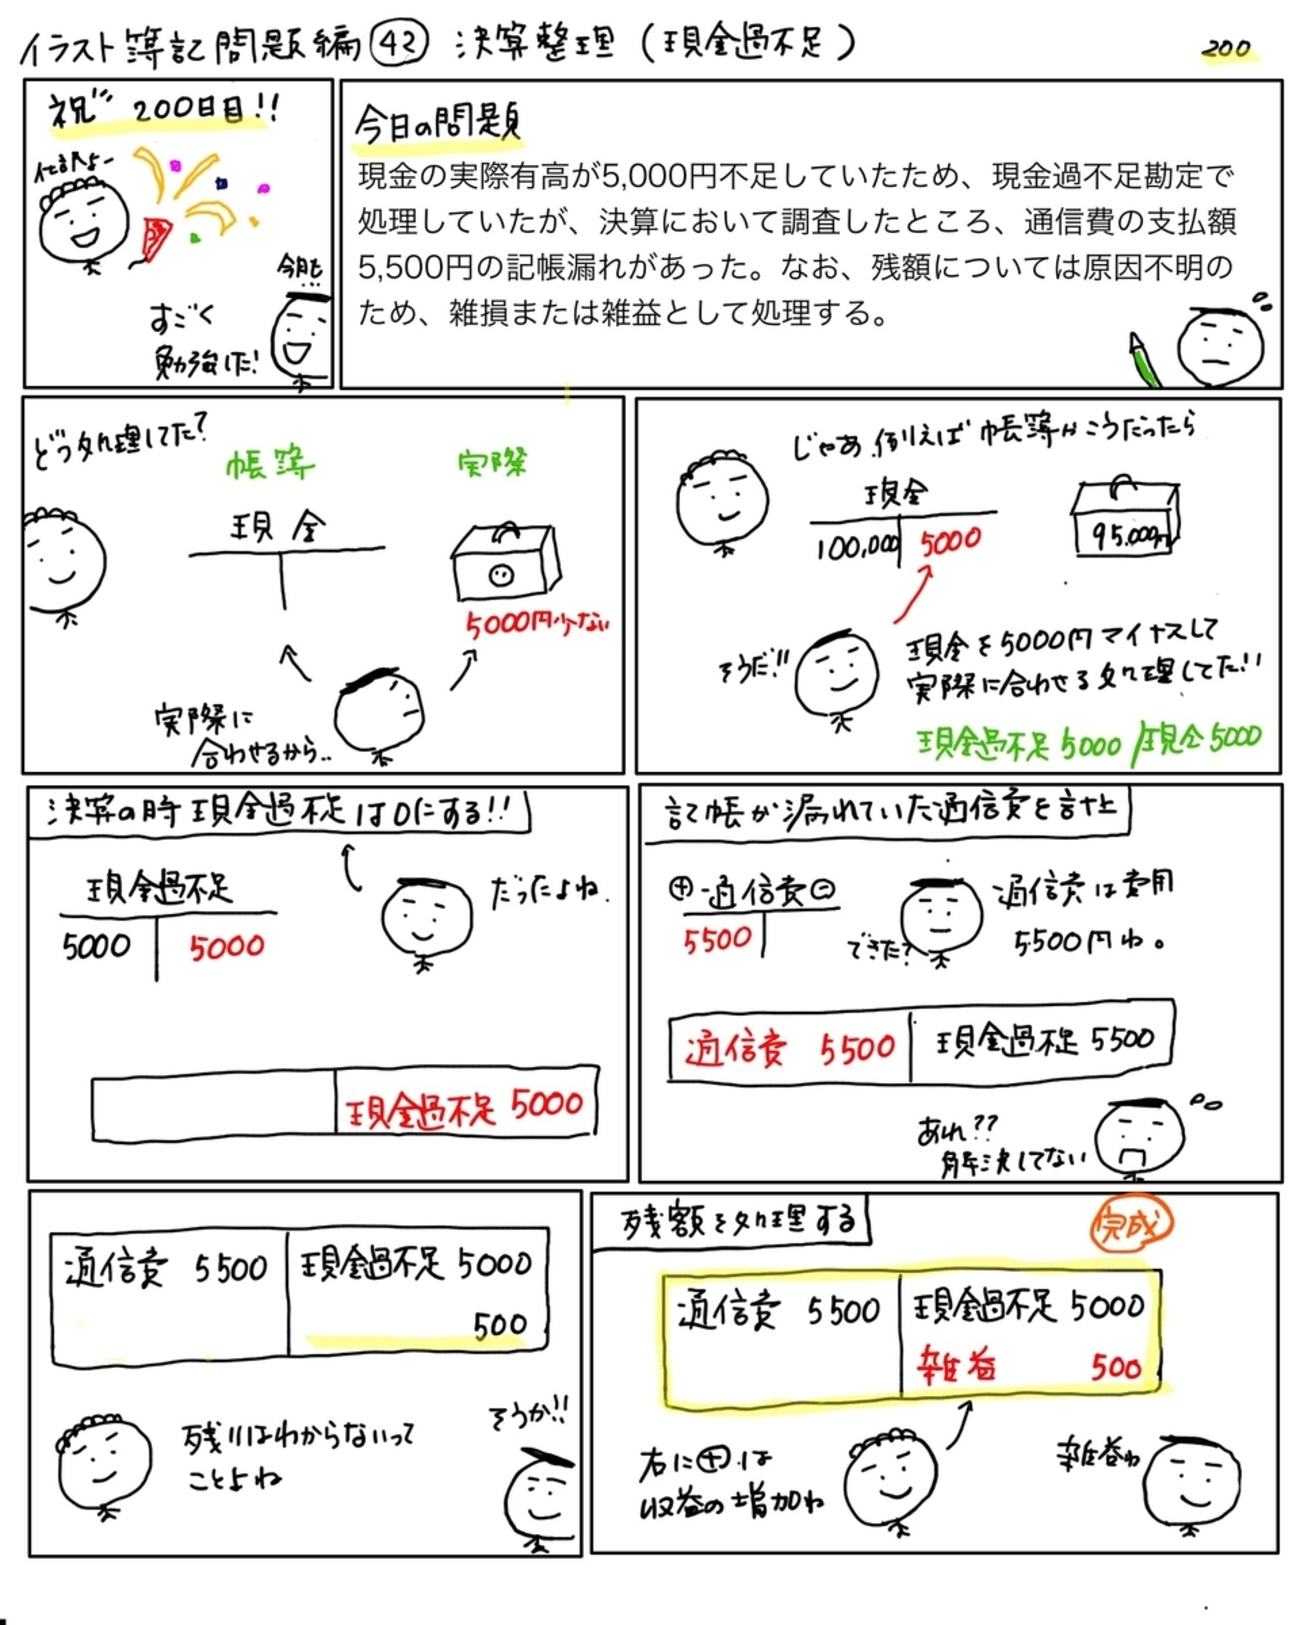 イラスト簿記問題編㊷ 決算整理(現金過不足)
200
祝 200日目!!
すごく
勉強した!
今日の問題
現金の実際有高が5,000円不足していたため、現金過不足勘定で
処理していたが、決算において調査したところ、通信費の支払額
5,500円の記帳漏れがあった。なお、残額については原因不明の
ため、雑損または雑益として処理する。
どう処理してた?
帳簿 実際
現金
5000円少ない
実際に
合わせるから..
じゃあ、例えば 帳簿がこうだったら
現金
100,000 5000
95,000円
そうだ!!
現金を5000円マイナスして
実際に合わせる処理してた!!
現金過不足 5000 / 現金 5000
決算の時 現金過不足は0にする!!
現金過不足
5000 5000
だったよね.
現金過不足 5000
記帳が漏れていた通信費を計上
⊕ 通信費 ⊖
5500
できた?
通信費は費用
5500円ね。
通信費 5500 現金過不足 5500
あれ??
解決してない
通信費 5500 現金過不足 5000
500
残りはわからないって
ことよね
そうか!!
残額を処理する
完成
通信費 5500 現金過不足 5000
雑益 500
右に⊕は
収益の増加ね
雑益ね